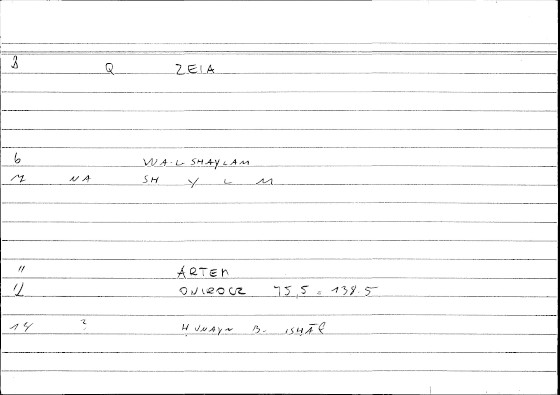 8 Q ZEIA
6 WA-L SHAYLAM
7 NA SH Y L M
11 ARTEM
12 ONIROCR 75,5 = 138.5
14 ? ḤUNAYN B. ISḤĀQ